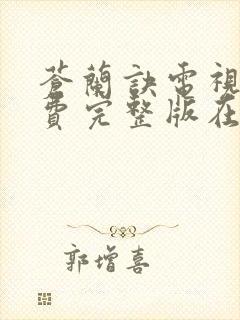 蒼蘭訣電視
費完整版在
郭增喜